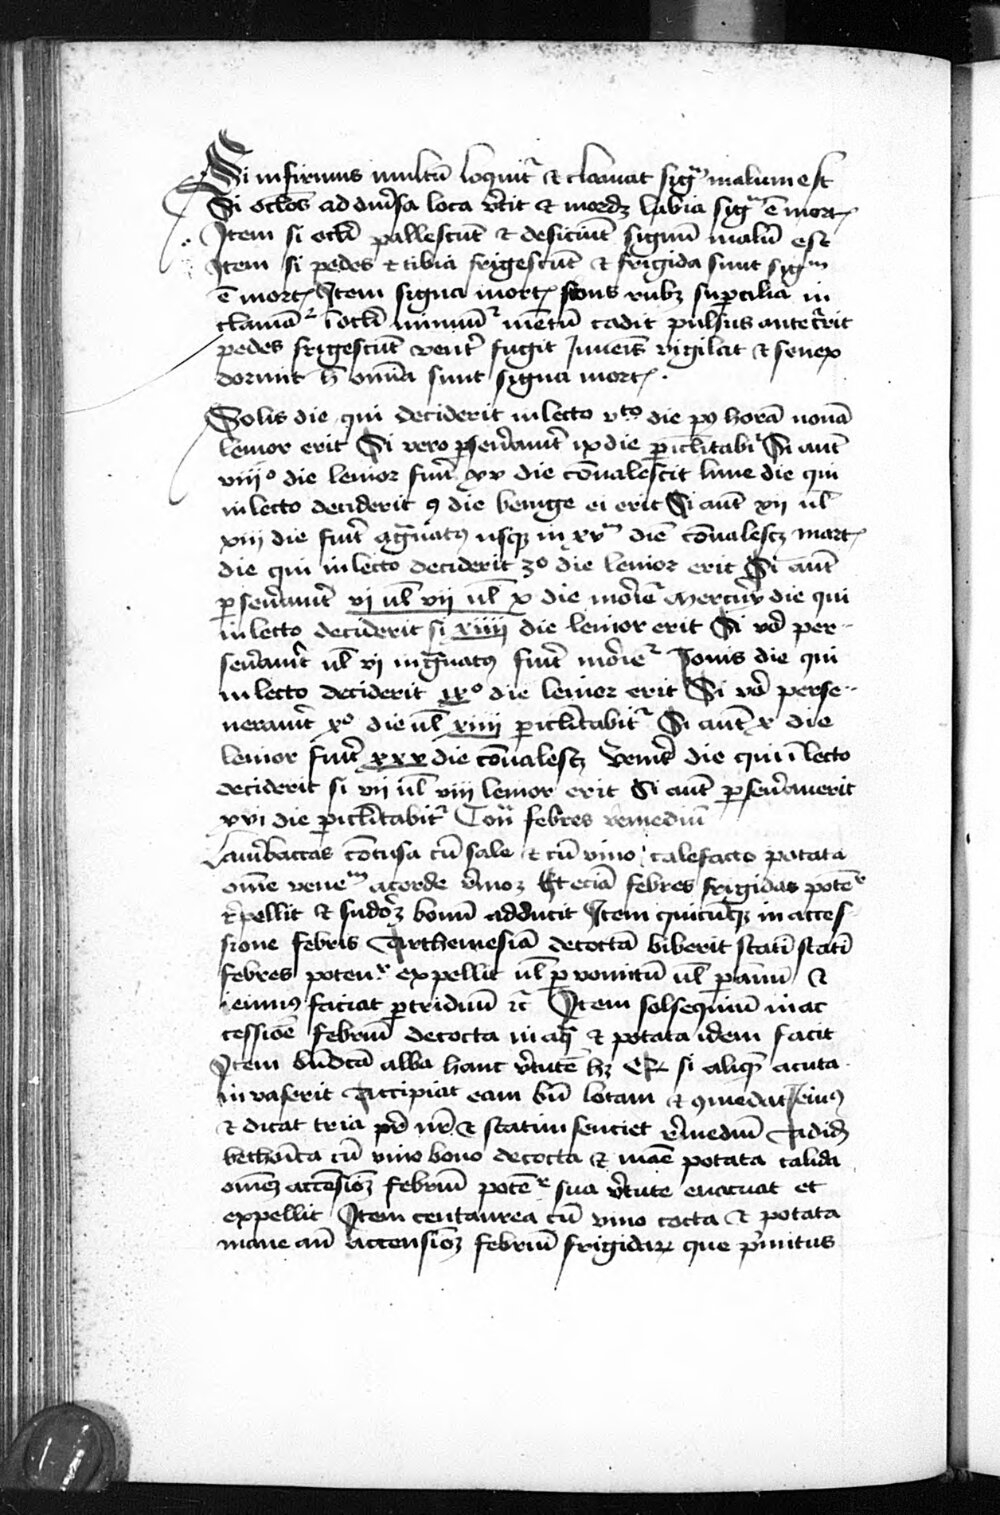 Si infirmus multū loquit᷑ ⁊ clamat sigᷤ malum est
Si oclōs ad diūsa loca v̄tit ⁊ mordꝫ labia sigᷤ ē mortꝭ
Item si ocłi pallescūt ⁊ deficiūt signū malū est
Item si pedes ⁊ tibia frigescūt ⁊ frigida sunt sigᵐ
ē mortꝭ Item signa mortꝭ frons rubꝫ suꝑcilia in
clinanᷣ ocłi minuūᷣ mentū cadit pulsus antecurrit
pedes frigescūt vent̄ fugit Iuuenis vigilat ⁊ senex
dormit h̄ omīa sunt signa mortꝭ
Solis die qui deciderit in lecto vᵗᵒ die pꝰ horā nonā
leuior erit Si vero ꝑseūauit̄ ix die ꝑiclītabiᷣ Si aut̄
viiiᵒ die leuior fuit̄ xv die cōualescit lune die qui
in lecto deciderit ꝯ die benige ei erit Si aut̄ xii ul̄
xiii die fuit̄ ag̃uatꝰ usqꝫ in xvᵐ diē cōualescꝫ martꝭ
die qui in lecto deciderit 3ᵒ die leuior erit Si aut̄
ꝑseūauit̄ vi ul̄ vii ul̄ x die morieᷣ Mercurij die qui
in lecto deciderit si xiiii die leuior erit Si vō per-
seūauit̄ ul̄ vi ing̃uatꝰ fuit̄ morieᷣ Iouis die qui
in lecto deciderit ixᵒ die leuior erit Si vō perse-
uerauit̄ xᵒ die ul̄ xiiii ꝑiclītabitᷣ Si aut̄ x die
leuior fuit̄ xxx die cōualescꝫ Venīs die qui ī lecto
deciderit si vii ul̄ viii leuior erit Si aut̄ ꝑseūauerit
xvi die ꝑiclītabitᷣ Cont̄ febres remediū
Laurībaccas contusa cū sale ⁊ cū vino calefacto potata
omē veneᵐ acorde Et eciā febres frigidas potenᷣ
repellit ⁊ sudorꝫ bonū adducit Item quicūqꝫ in acces-
sione febris Arthemesiā decoctā biberit statī statī
febres potenᷣ expellit ul̄ ꝑ vomitū ul̄ ꝑ anū ⁊
ieiunꝰ faciat ꝑ triduū ⁊c̄ Item solsequiū in ac
cessiōe febriū decocta in aq̄ ⁊ potata idem facit
Item alba hanc v̄tutē hꝫ si aliqᷤ acuta
inuaserit Accipiat eam bn̄ lotam ⁊ ꝯmedat ieiunꝰ
⁊ dicat tria pr̄ nr̄ ⁊ statim senciet remediū
bethonīca cū vino bono decocta ⁊ mane potata calida
omēs accensiōꝫ febriū potenᷣ sua v̄tute euacuat et
expellit Item centaurea cū vino cocta ⁊ potata
mane añ accensiōꝫ febriū frigidaꝝ que pᷣmitus